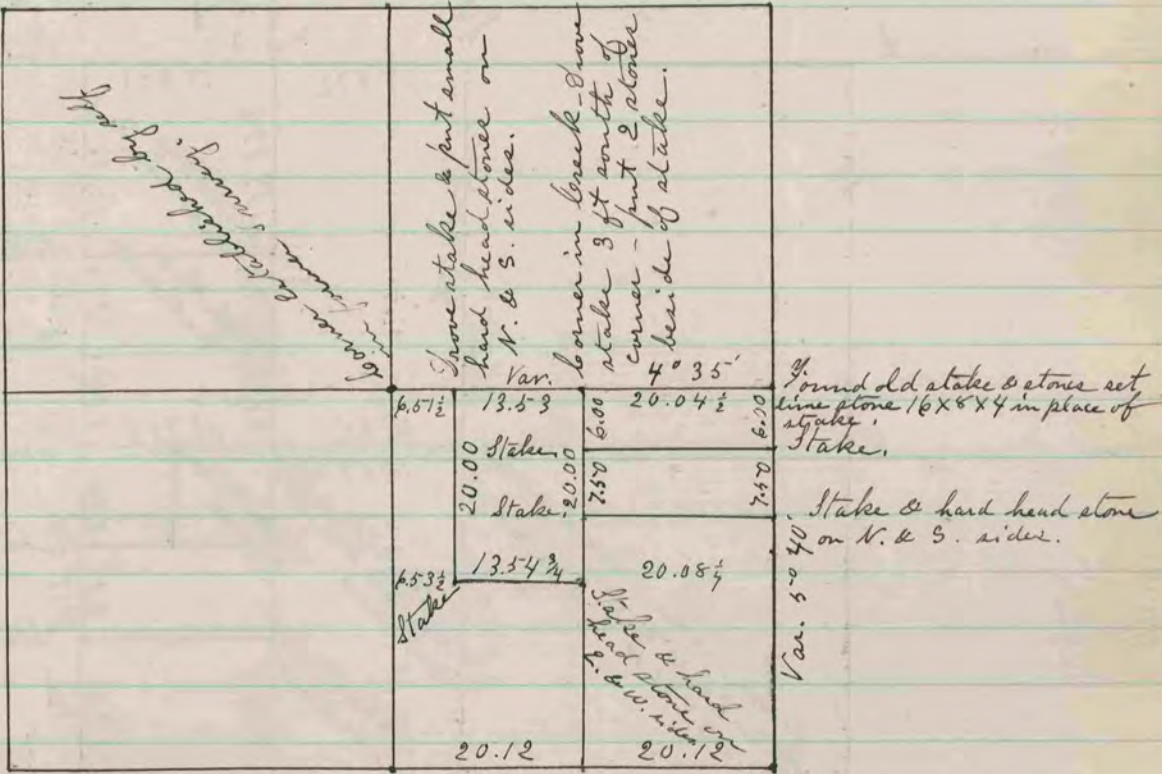 Corner established by off
in former survey.
Drove stake & put small
hard head stones on
N. & S. sides.
Corner in Creek - Drove
stake 3 ft south of
corner - put 2 stones
beside of stake.
Var. 4° 35'
6.51½ 13.53 20.04½
Found old stake & stones set
lime stone 16X8X4 in place of
stake.
6.00 6.00
Stake. Stake.
20.00 20.00
7.50 7.50
Stake. Stake & hard head stone
on N. & S. sides.
6.53½ 13.54¾ 20.08¼
Stake
Stake & hard
head stone on
E. & W. sides
Var. 5° 40'
20.12 20.12